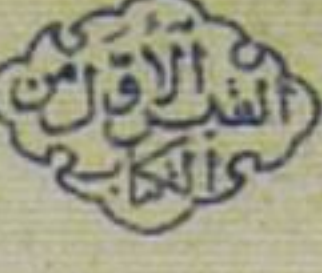 القسم الأوّل من
الكتاب